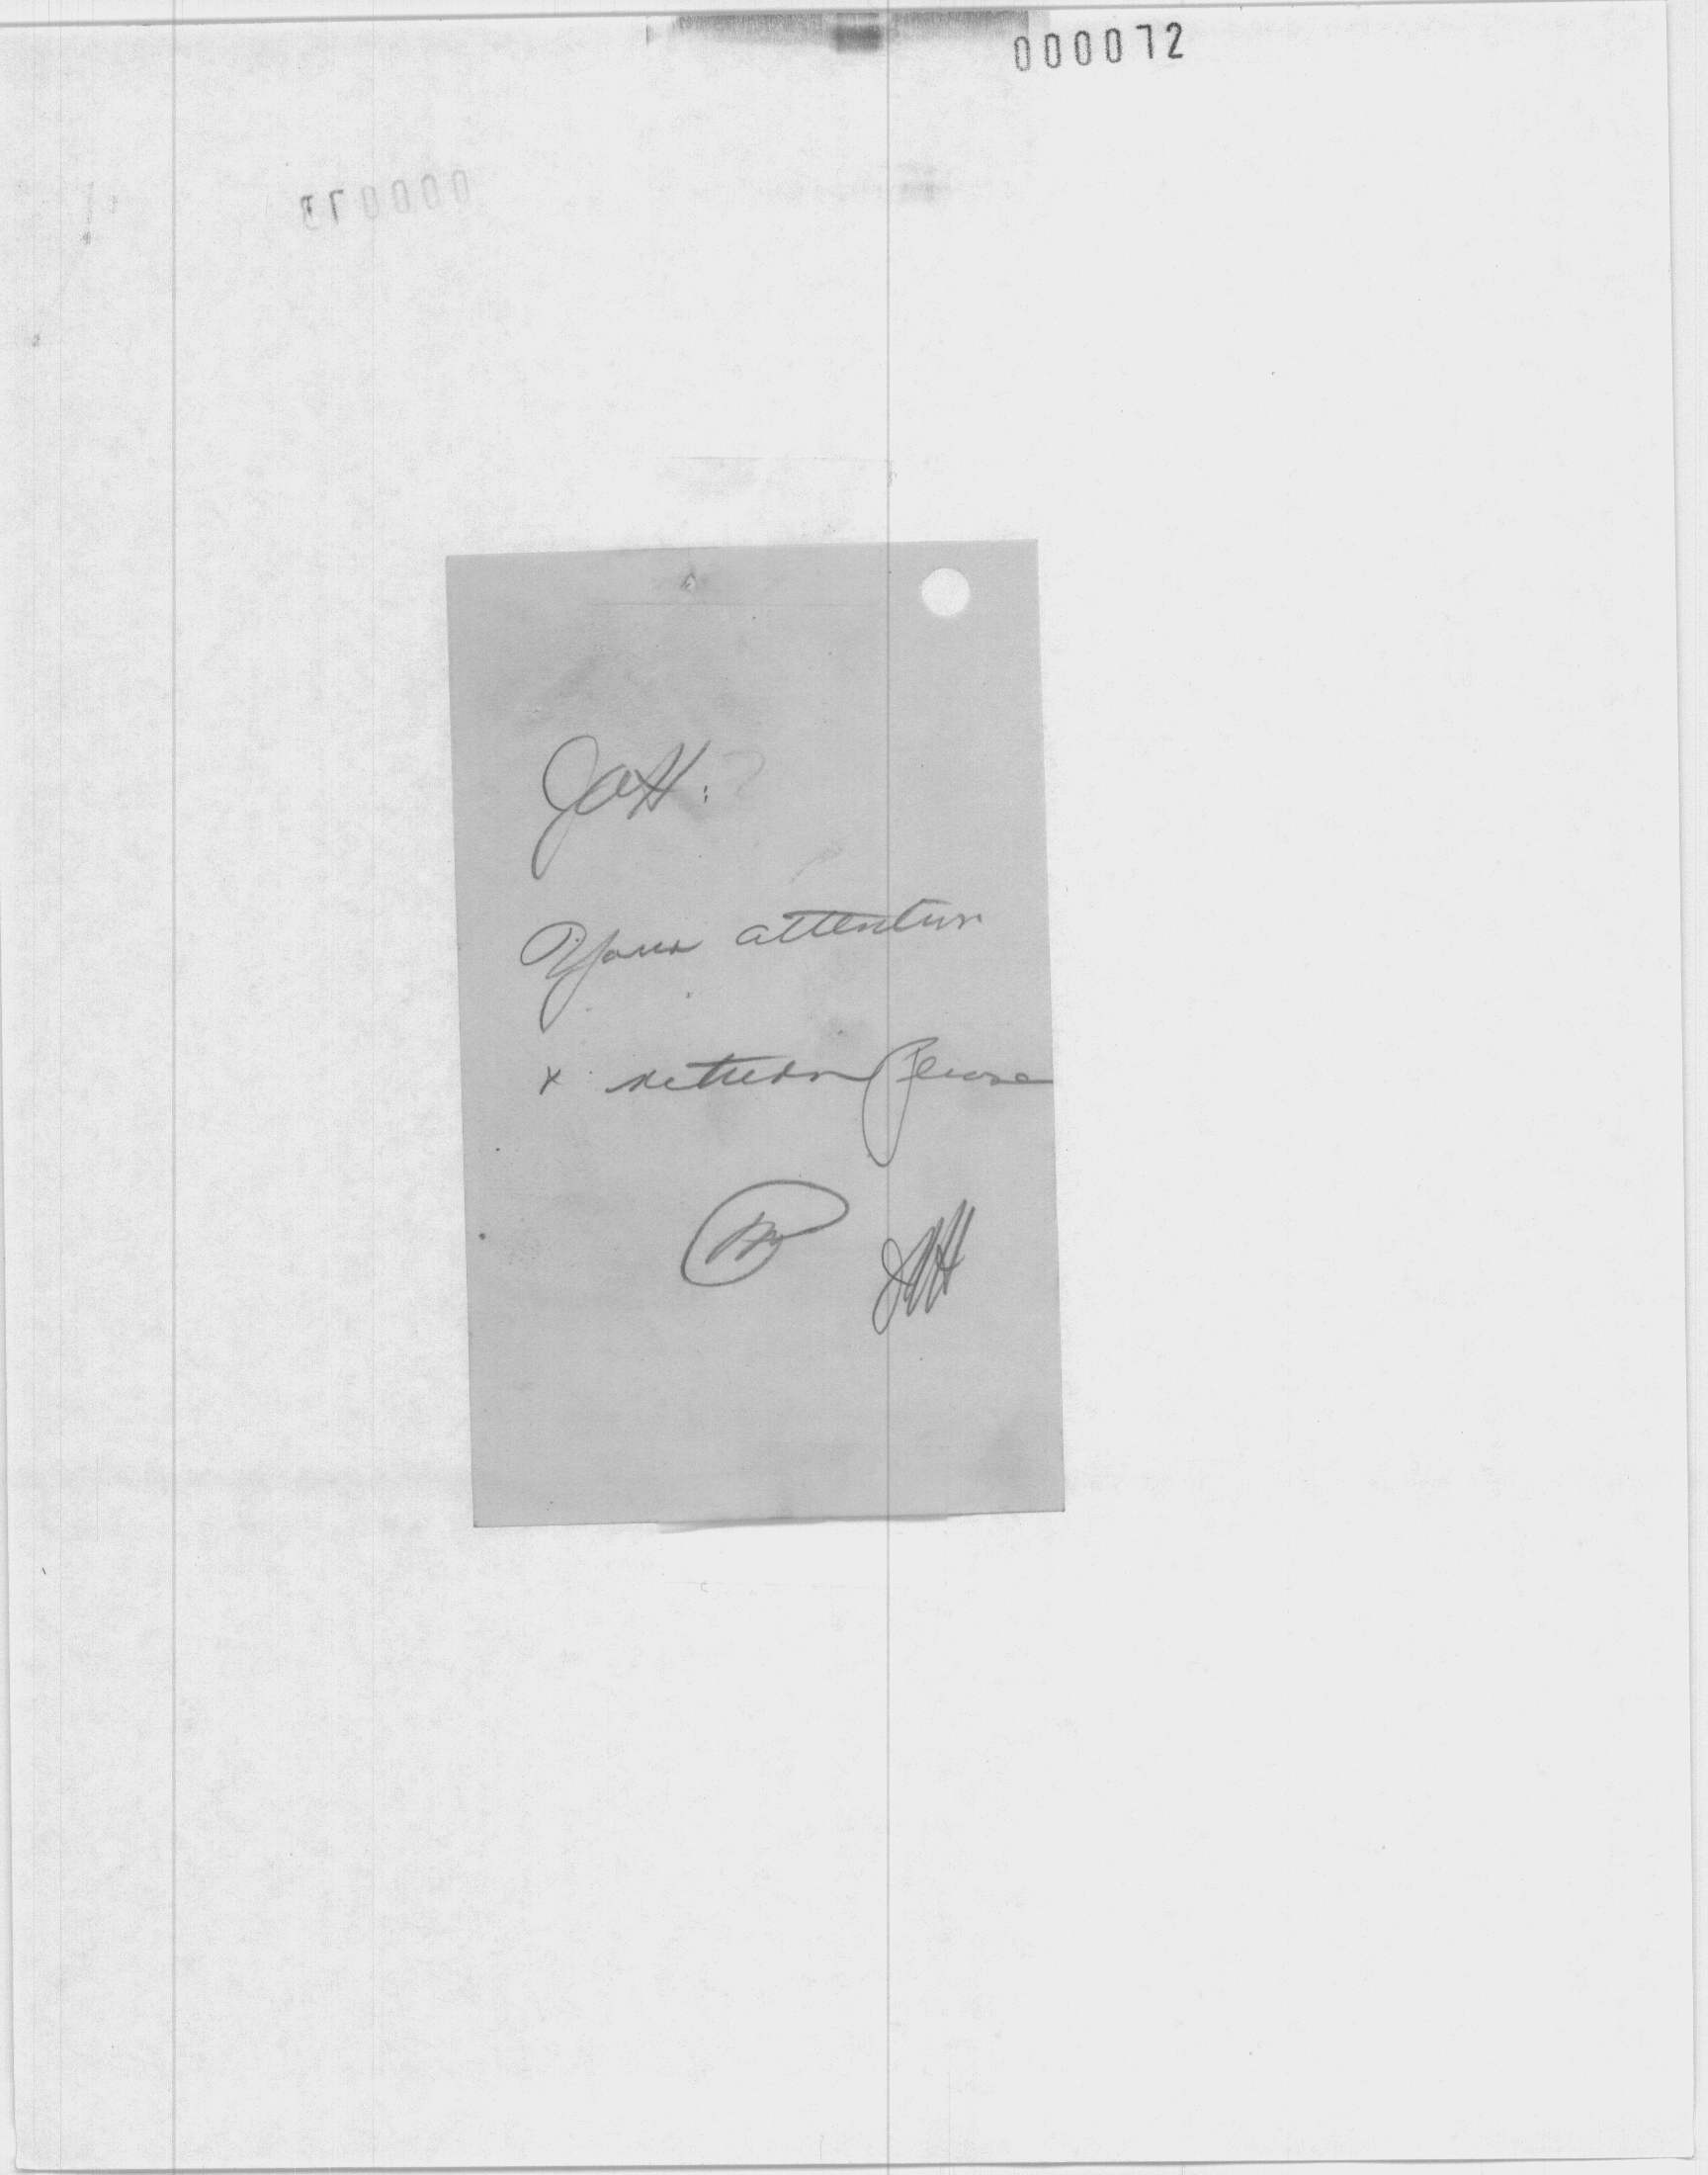 000072
JAH:
Your attention
& return please
JAH